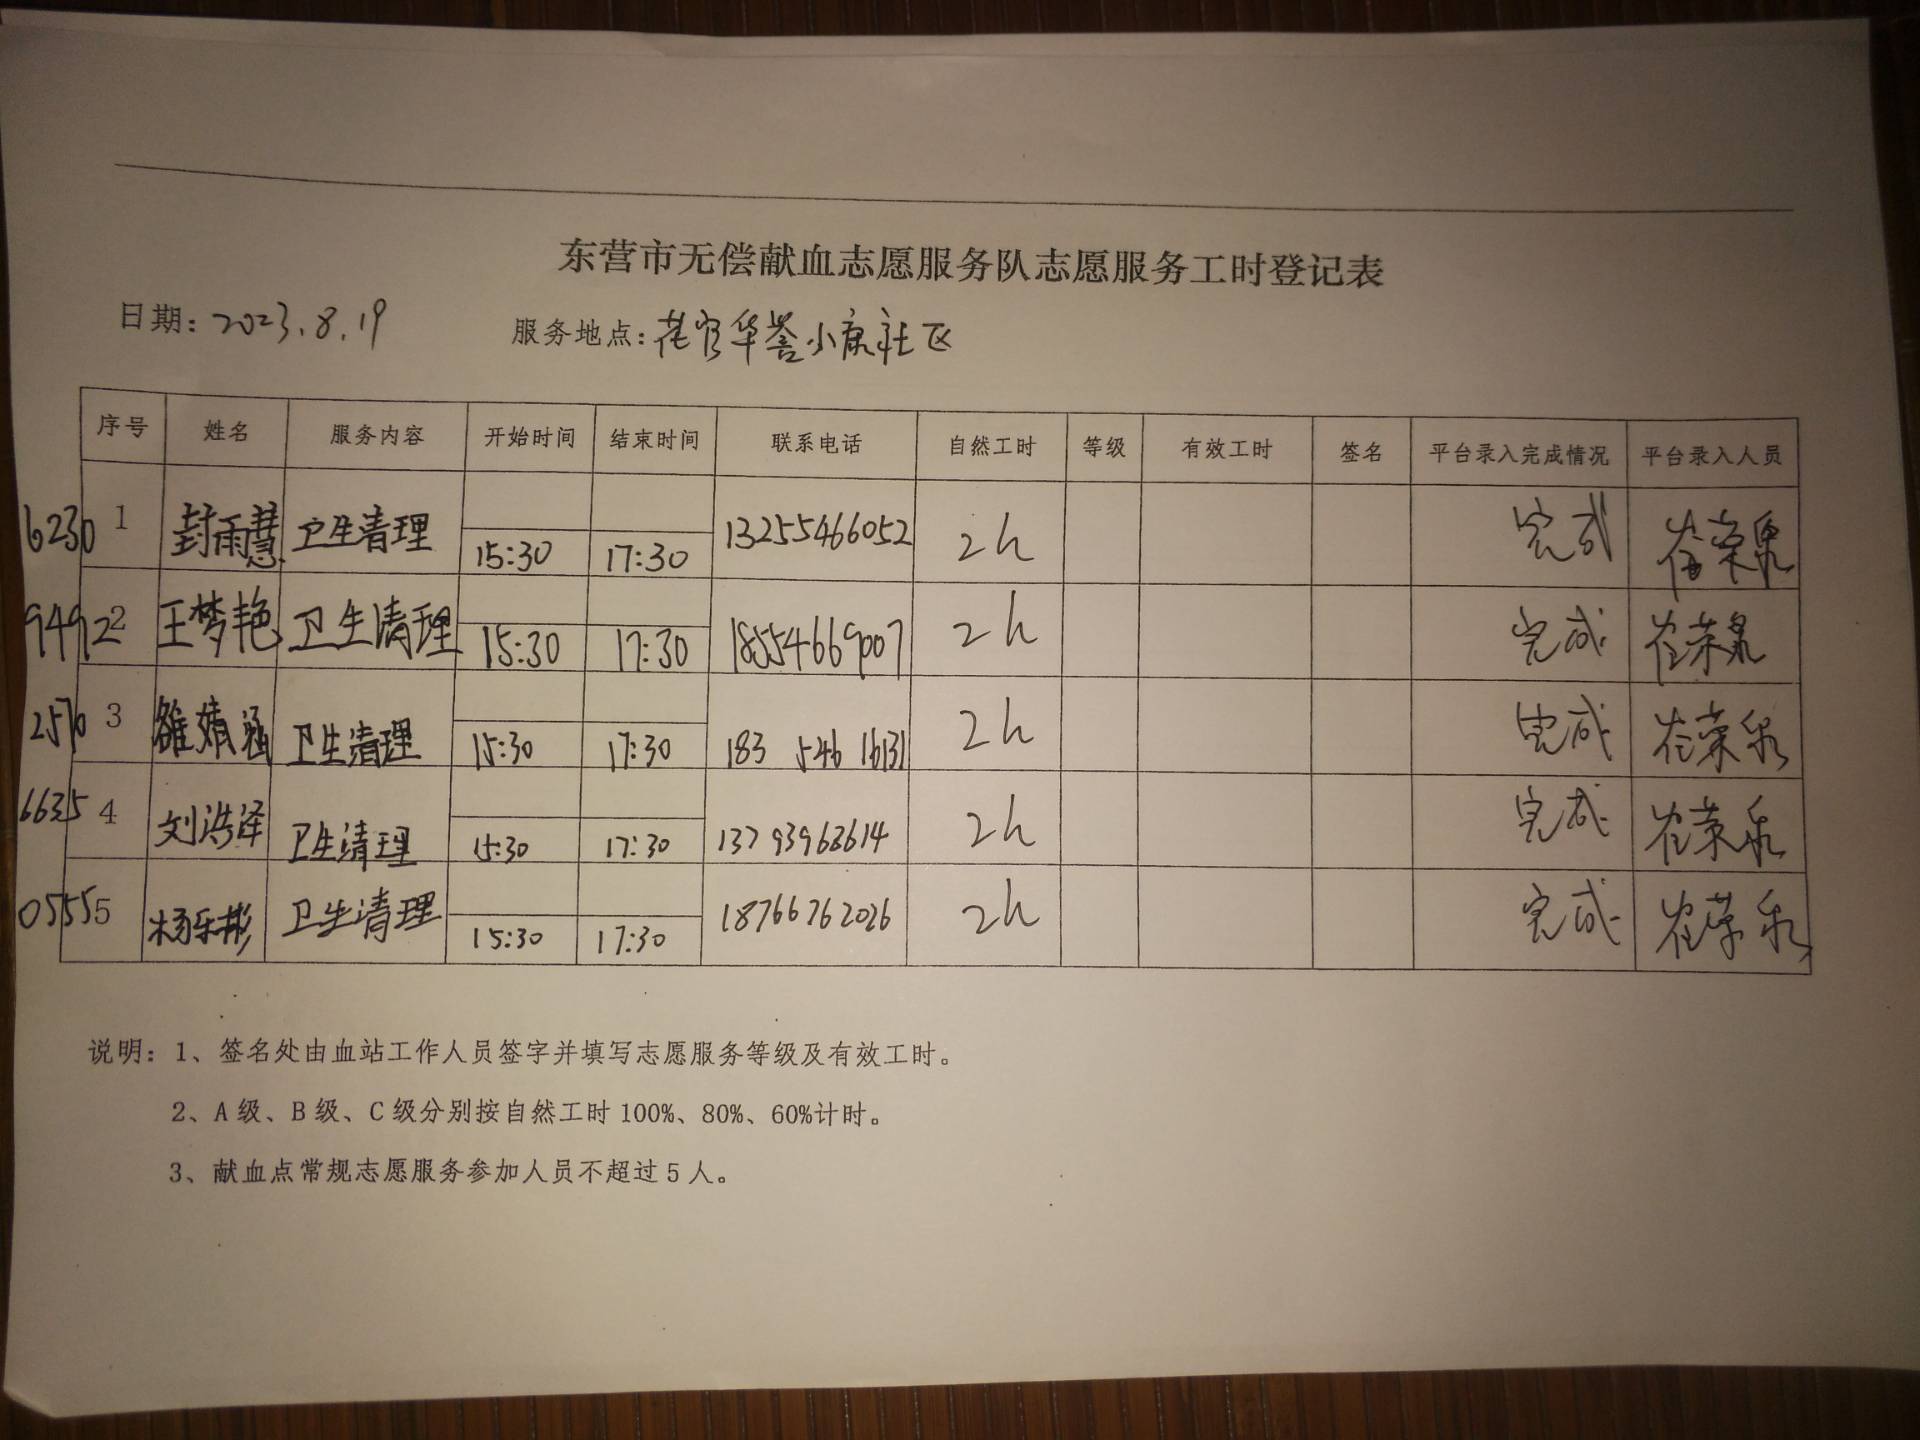 东营市无偿献血志愿服务队志愿服务工时登记表
日期：2023.8.19 服务地点：花官华誉小康社区
序号 姓名 服务内容 开始时间 结束时间 联系电话 自然工时 等级 有效工时 签名 平台录入完成情况 平台录入人员
6230 1 封雨慧 卫生清理 15:30 17:30 13255466052 2h 完成 崔荣泉
9492 2 王梦艳 卫生清理 15:30 17:30 18554669007 2h 完成 崔荣泉
2570 3 雒婧涵 卫生清理 15:30 17:30 183 546 16131 2h 完成 崔荣泉
6635 4 刘浩泽 卫生清理 15:30 17:30 13793968614 2h 完成 崔荣泉
0555 5 杨乐彬 卫生清理 15:30 17:30 18766762026 2h 完成 崔荣泉
说明：1、签名处由血站工作人员签字并填写志愿服务等级及有效工时。
2、A级、B级、C级分别按自然工时100%、80%、60%计时。
3、献血点常规志愿服务参加人员不超过5人。